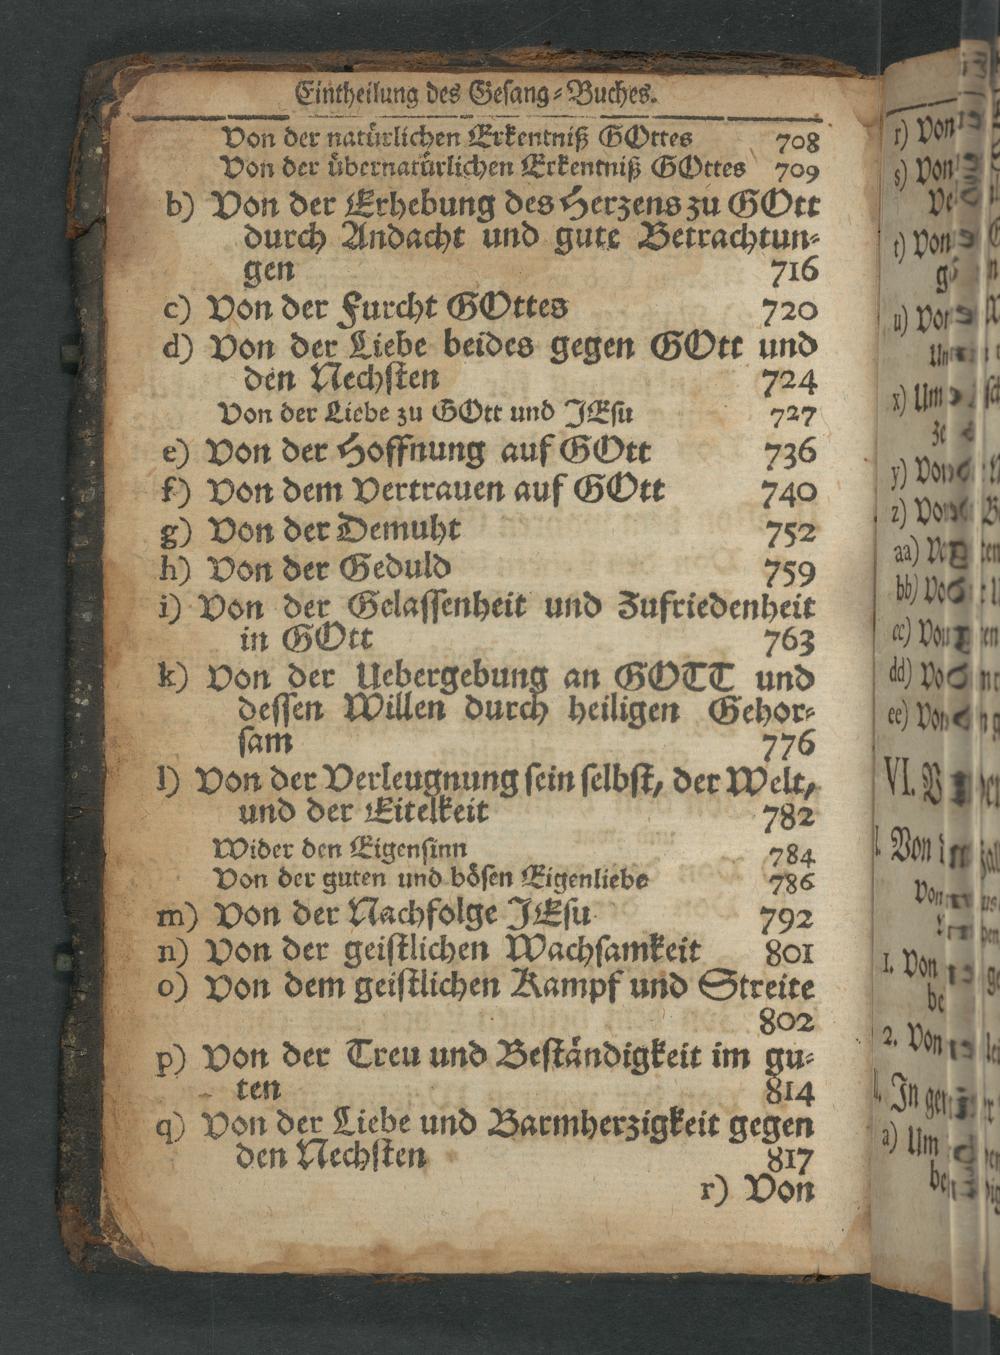 Eintheilung des Gesang-Buches.
Von der natürlichen Erkentniß GOttes 708
Von der übernatürlichen Erkentniß GOttes 709
b) Von der Erhebung des Herzens zu GOtt
durch Andacht und gute Betrachtun-
gen 716
c) Von der Furcht GOttes 720
d) Von der Liebe beides gegen GOtt und
den Nechsten 724
Von der Liebe zu GOtt und JEsu 727
e) Von der Hoffnung auf GOtt 736
f) Von dem Vertrauen auf GOtt 740
g) Von der Demuht 752
h) Von der Geduld 759
i) Von der Gelassenheit und Zufriedenheit
in GOtt 763
k) Von der Uebergebung an GOTT und
dessen Willen durch heiligen Gehor-
sam 776
l) Von der Verleugnung sein selbst, der Welt,
und der Eitelkeit 782
Wider den Eigensinn 784
Von der guten und bösen Eigenliebe 786
m) Von der Nachfolge JEsu 792
n) Von der geistlichen Wachsamkeit 801
o) Von dem geistlichen Kampf und Streite
802
p) Von der Treu und Beständigkeit im gu-
ten 814
q) Von der Liebe und Barmherzigkeit gegen
den Nechsten 817
r) Von
r) Von
s) Von
t) Von
u) Von
x) Um
y) Von
z) Von
aa)
bb)
cc) Von
dd)
ee) Von
VI.
Von
Von
1. Von
2. Von
In
a) Um